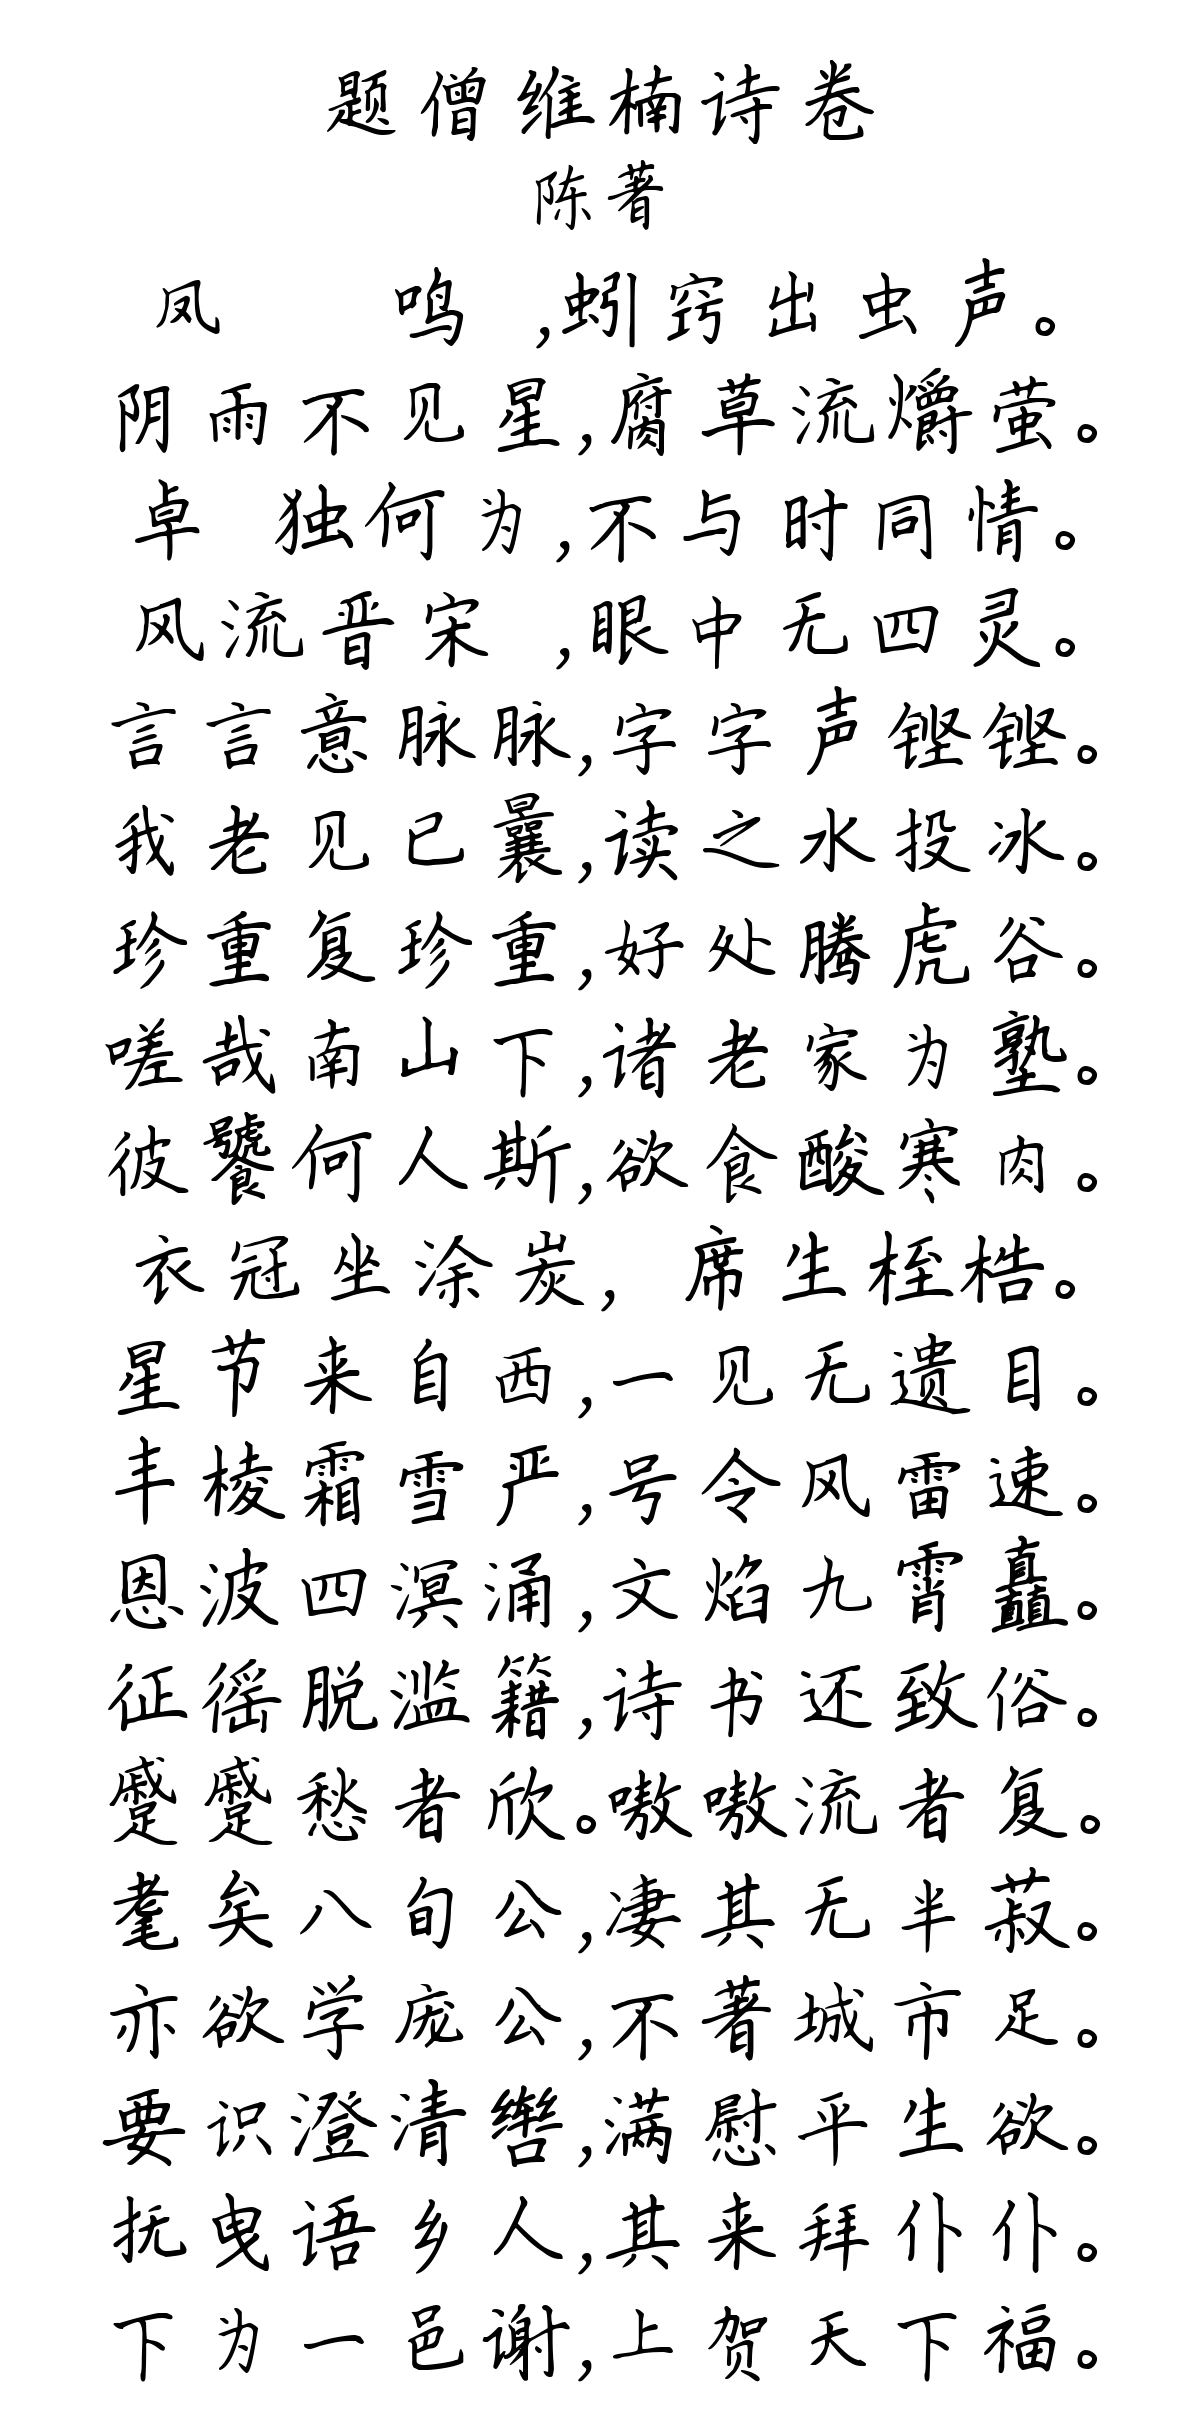 题僧维楠诗卷
陈著
凤 鸣 ,蚓窍出虫声。
阴雨不见星,腐草流爝萤。
卓 独何为,不与时同情。
风流晋宋 ,眼中无四灵。
言言意脉脉,字字声铿铿。
我老见已曩,读之水投冰。
珍重复珍重,好处腾虎谷。
嗟哉南山下,诸老家为塾。
彼饕何人斯,欲食酸寒肉。
衣冠坐涂炭, 席生桎梏。
星节来自西,一见无遗目。
丰棱霜雪严,号令风雷速。
恩波四溟涌,文焰九霄矗。
征徭脱滥籍,诗书还致俗。
蹙蹙愁者欣。嗷嗷流者复。
耄矣八旬公,凄其无半菽。
亦欲学庞公,不著城市足。
要识澄清辔,满慰平生欲。
抚曳语乡人,其来拜仆仆。
下为一邑谢,上贺天下福。